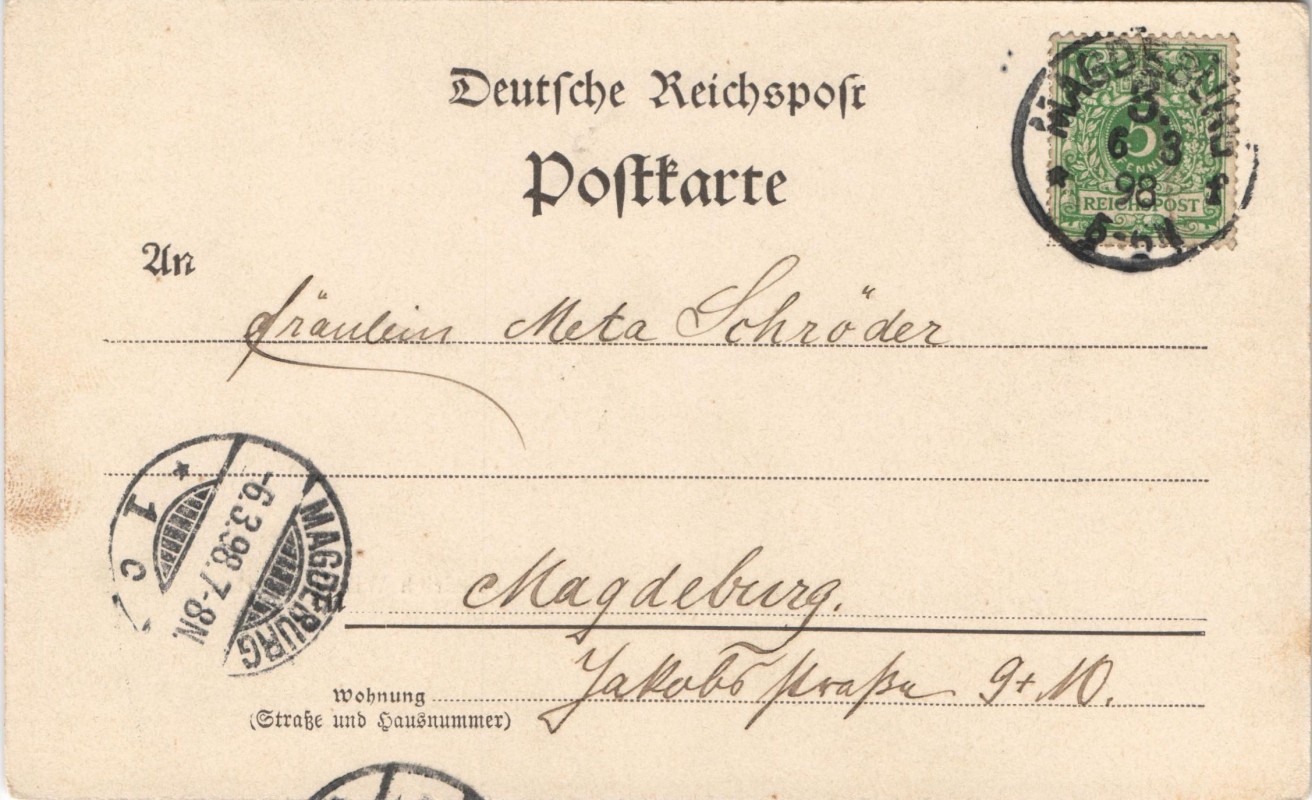 Deutsche Reichspost
Postkarte
MAGDEBURG
3.
6 3
98
5-6N
* f
5
PFENNIG
REICHSPOST
An
Fräulein Meta Schröder
* 1 c
-6.3.98.7-8N.
MAGDEBURG
Magdeburg.
Jakobsstraße 9+10.
Wohnung
(Straße und Hausnummer)